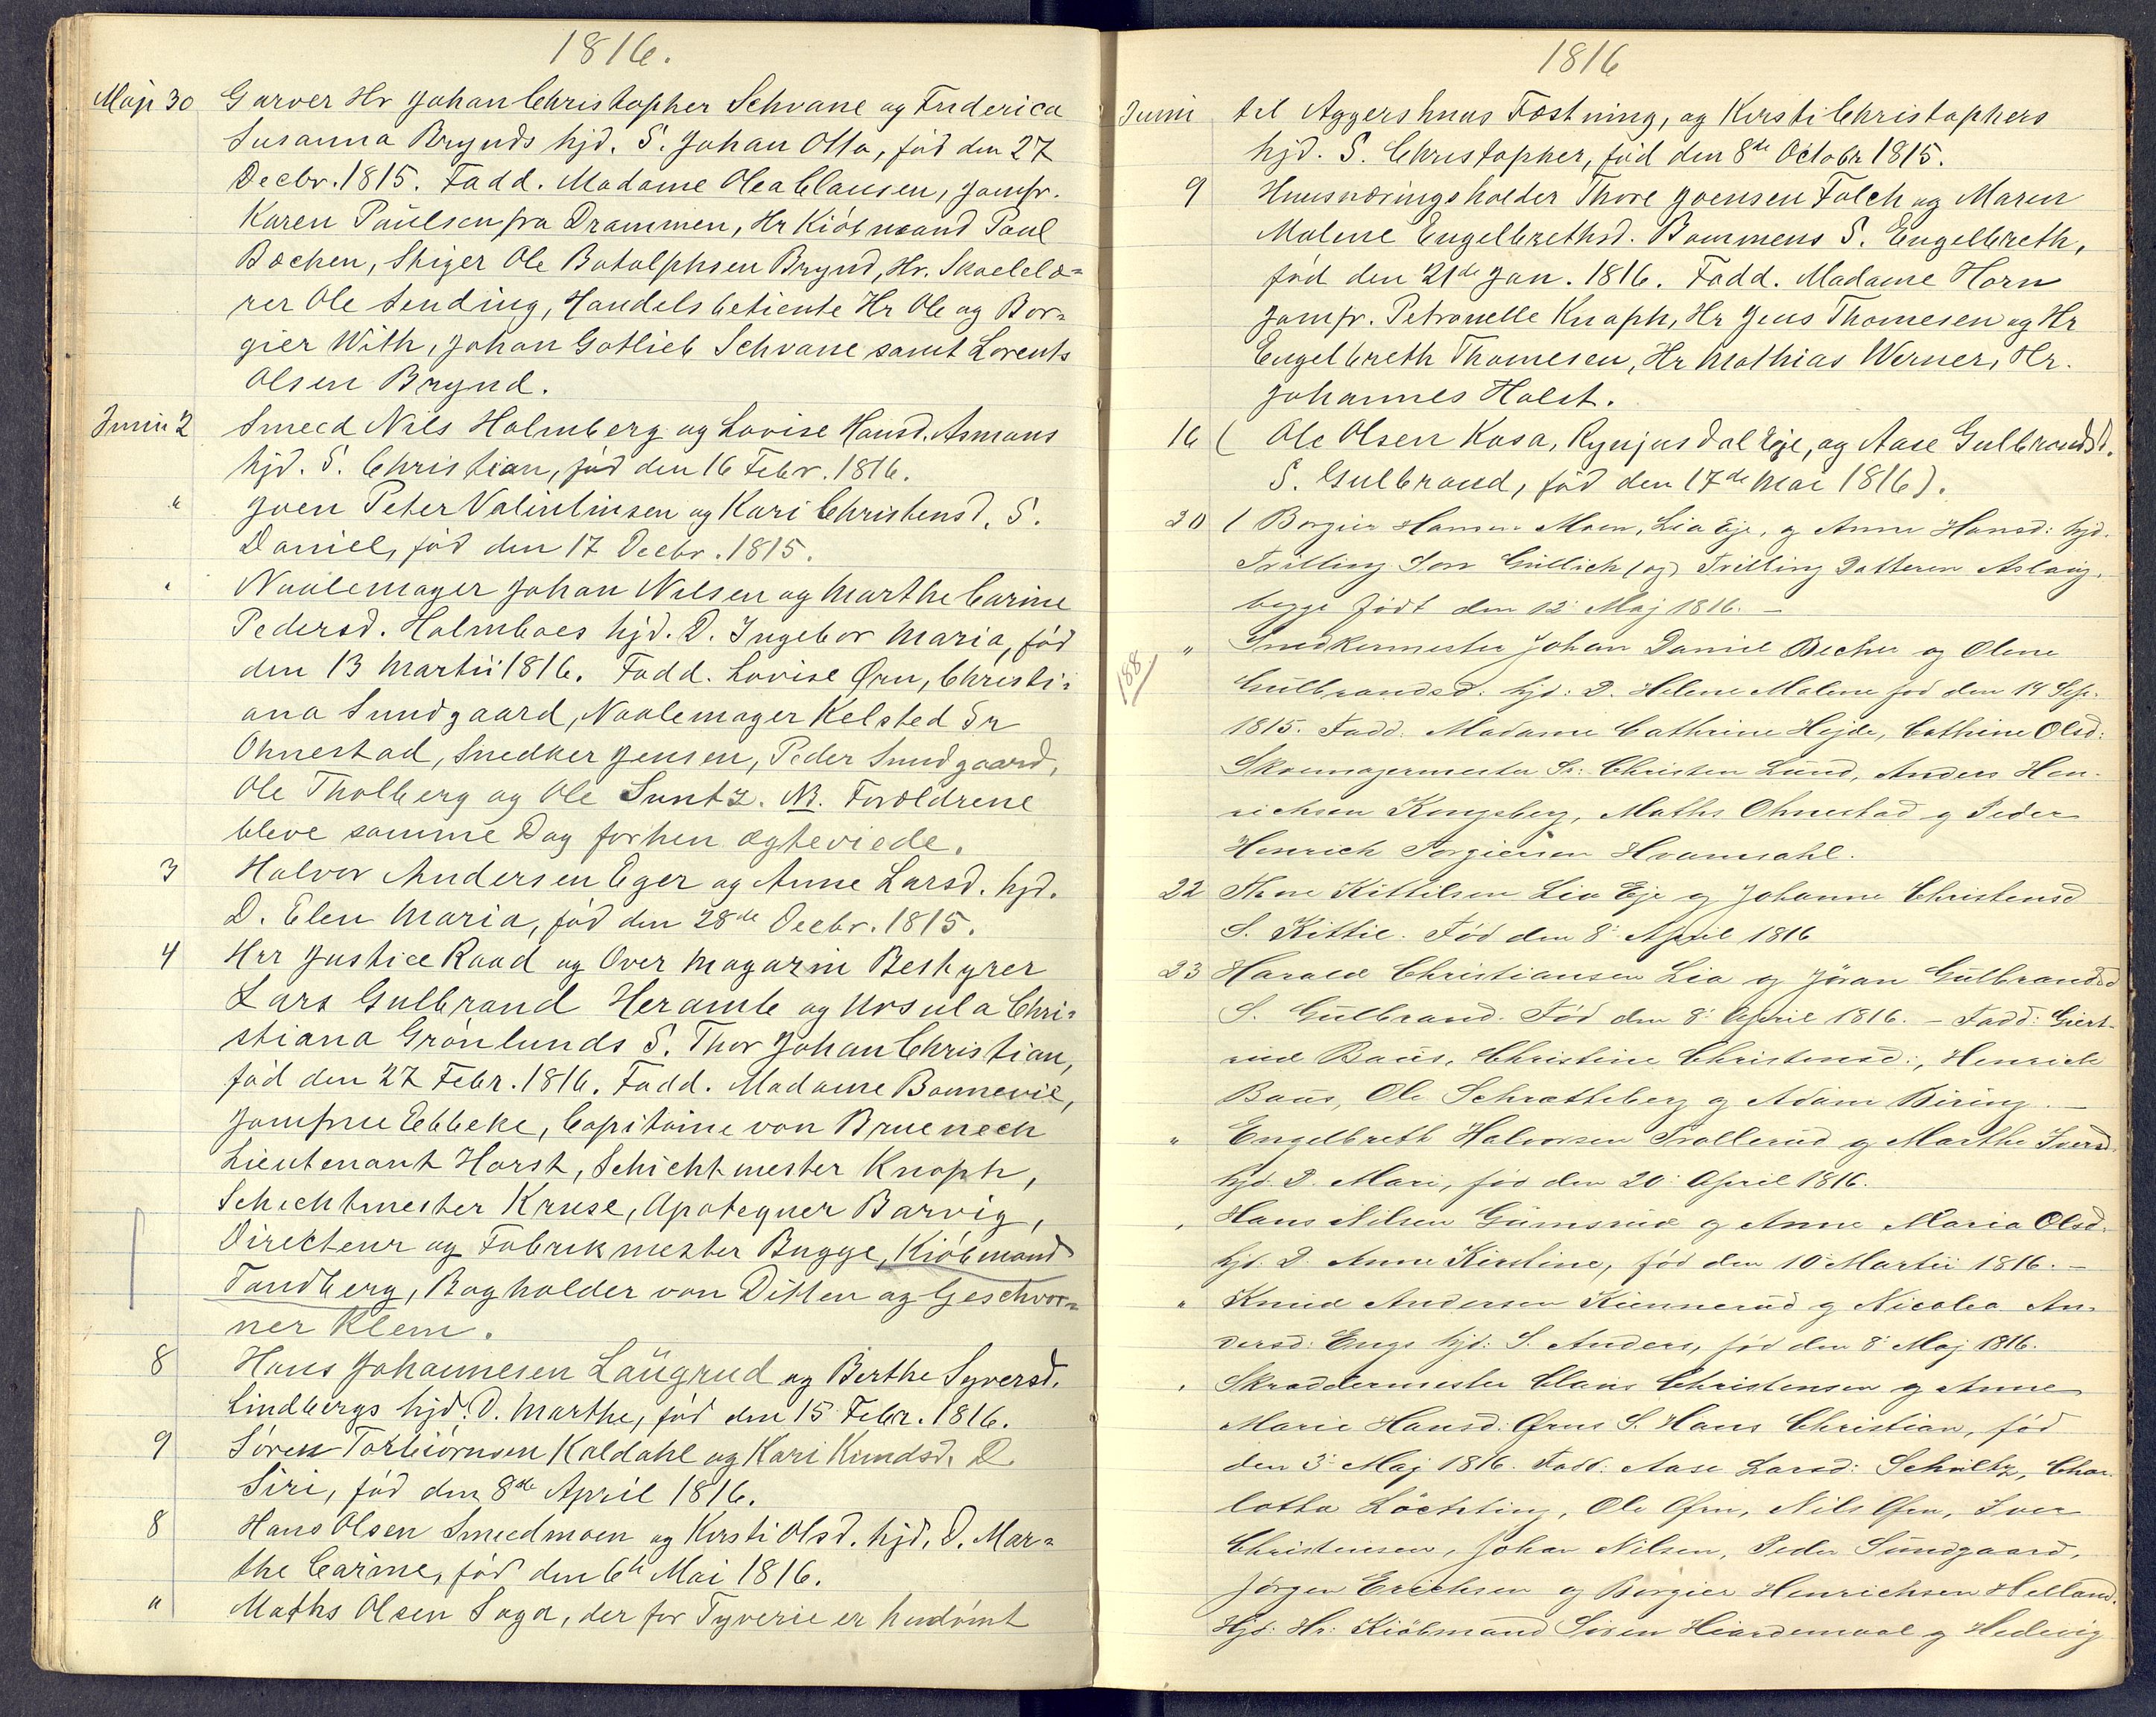 1816.
Maji 30 Garver Hr Johan Christopher Schvane og Friderica
Susanna Brynds hjd. S. Johan Otto, född den 27
Decbr. 1815. Fadd. Madame Olea Clausen, Jomfr.
Karen Paulsen fra Drammen, Hr Kiöbmand Paul
Bæchen, Stiger Ole Botolphsen Brynd, Hr. Skoelelæ=
rer Ole Sending, Handelsbetiente Hr Ole og Bor=
gier With, Johan Gotlieb Schvane samt Lorents
Olsen Brynd.
Junii 2 Smed Nils Holmberg og Lovise Hansd. Asmans
hjd. S. Christian, föd den 16 Febr. 1816.
" Joen Peter Valintinsen og Kari Christensd. S.
Daniel, föd den 17 Decbr. 1815.
" Naalemager Johan Nilsen og Marthe Carine
Pedersd. Holmboes hjd. D. Ingebor Maria, föd
den 13 Martii 1816. Fadd. Lovise Ørn, Christi=
ana Sundgaard, Naalemager Kelsted Sr
Ohnestad, Snedker Jensen, Peder Sundgaard,
Ole Tholberg og Ole Suntz. NB. Forældrene
bleve samme Dag forhen ægteviede.
3 Halvor Andersen Eger og Anne Larsd. hjd.
D. Elen Maria, föd den 28de Decbr. 1815.
4 Hrr Justice Raad og Over Magazin Bestyrer
Lars Gulbrand Heramb og Ursula Chri=
stiana Grönlunds S. Thor Johan Christian,
föd den 27 Febr. 1816. Fadd. Madame Bonnevie,
Jomfrue Ebbeke, Capitaine von Bruenech
Lieutenant Horst, Schichtmester Knoph,
Schichtmester Kruse, Apoteqver Barvig,
Directeur og Fabrikmester Bugge, Kiöbmand
Tandberg, Bogholder von Ditten og Geschvor=
ner Klem.
8 Hans Johannesen Laugrud og Berthe Syversd.
Lindbergs hjd. D. Marthe, föd den 15 Febr. 1816.
9 Sören Torbiörnsen Koldahl og Kari Knudsd. D.
Siri, föd den 8de April 1816.
8 Hans Olsen Smedmoen og Kirsti Olsd. hjd. D. Mar=
the Carine, föd den 6te Mai 1816.
" Maths Olsen Saga, der for Tyverie er hendömt
1816
Junii til Aggershuus Fæstning, og Kirsti Christophers
hjd. S. Christopher, föd den 8de Octobr 1815.
9 Huusnæringsholder Thore Joensen Falch og Maren
Malene Engelbrethsd. Bommens S. Engelbreth,
föd den 21de Jan. 1816. Fadd. Madame Horn
Jomfr. Petronelle Knoph, Hr Jens Thomesen og Hr
Engelbreth Thomesen, Hr Mathias Werner, Hr.
Johannes Holst.
16 ( Ole Olsen Kasa, Rynjusdal Eje, og Aase Gulbrandsd.
S. Gulbrand, föd den 17de Mai 1816).
20 ( Borgier Hansen Moen, Lia Eje, og Anne Hansd: hjd.
Tvilling Son Gullich (og) Tvilling Datteren Aslaug,
begge födt den 12: Maj 1816. —
" Snedkermester Johan Daniel Becher og Olene
Gulbrandsd: hjd: D. Helene Malene föd den 14 Sep.
188
1815. Fadd. Madame Cathrine Hejde, Cathrine Olsd:
Skoemagermester Sr: Christen Lund, Anders Hen-
richsen Kongsberg, Maths Ohnestad og Peder
Henrich Torgiersen Hvamsahl.
22 Thore Kittilsen Lia Eje og Johanne Christensd
S. Kittil. Föd den 8: April 1816
23 Harald Christiansen Lia og Jöran Gulbrandsd
S. Gulbrand. Föd den 8: April 1816. — Fadd: Giert-
rud Baus, Christine Christensd:, Henrich
Baus, Ole Schratteberg og Adam Biring. —
" Engelbreth Halvorsen Trollerud og Marthe Iversd.
hjd. D. Mari, föd den 20: April 1816.
" Hans Nilsen Gumsrud og Anne Maria Olsd.
hjd. D. Anne Kirstine, föd den 10: Martii 1816. —
" Knud Andersen Kiennerud og Nicolea An-
dersd: Engs hjd: S. Anders, föd den 8: Maj 1816.
" Skræddermester Claus Christensen og Anne
Marie Hansd: Ørns S. Hans Christian, föd
den 3: Maj 1816. Fadd: Aase Larsd: Schultz, Char-
lotta Löchting, Ole Ørn, Nils Ørn, Iver
Christensen, Johan Nilsen, Peder Sundgaard,
Jörgen Erichsen og Borgier Henrichsen Helland.
Hjd: Hr: Kiöbmand Sören Hiardemaal og Hedevig